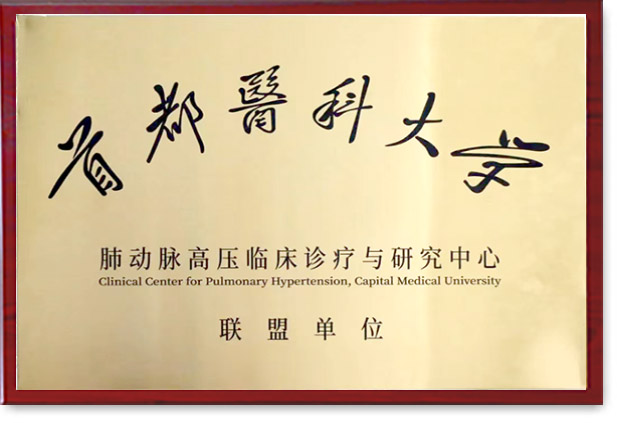 首都醫科大学
肺动脉高压临床诊疗与研究中心
Clinical Center for Pulmonary Hypertension, Capital Medical University
联盟单位